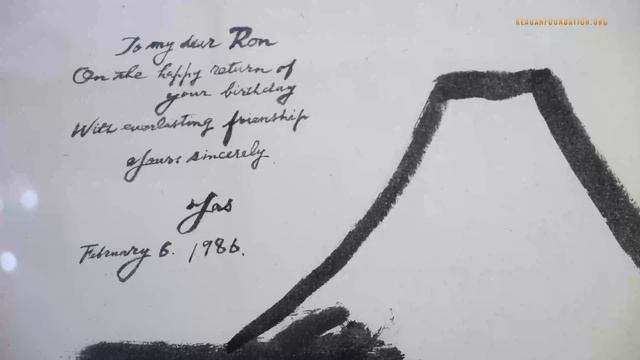 REAGANFOUNDATION.ORG
To my dear Ron
On the happy return of
your birthday
With everlasting frienship
yours sincerely
Yas
February 6. 1986.